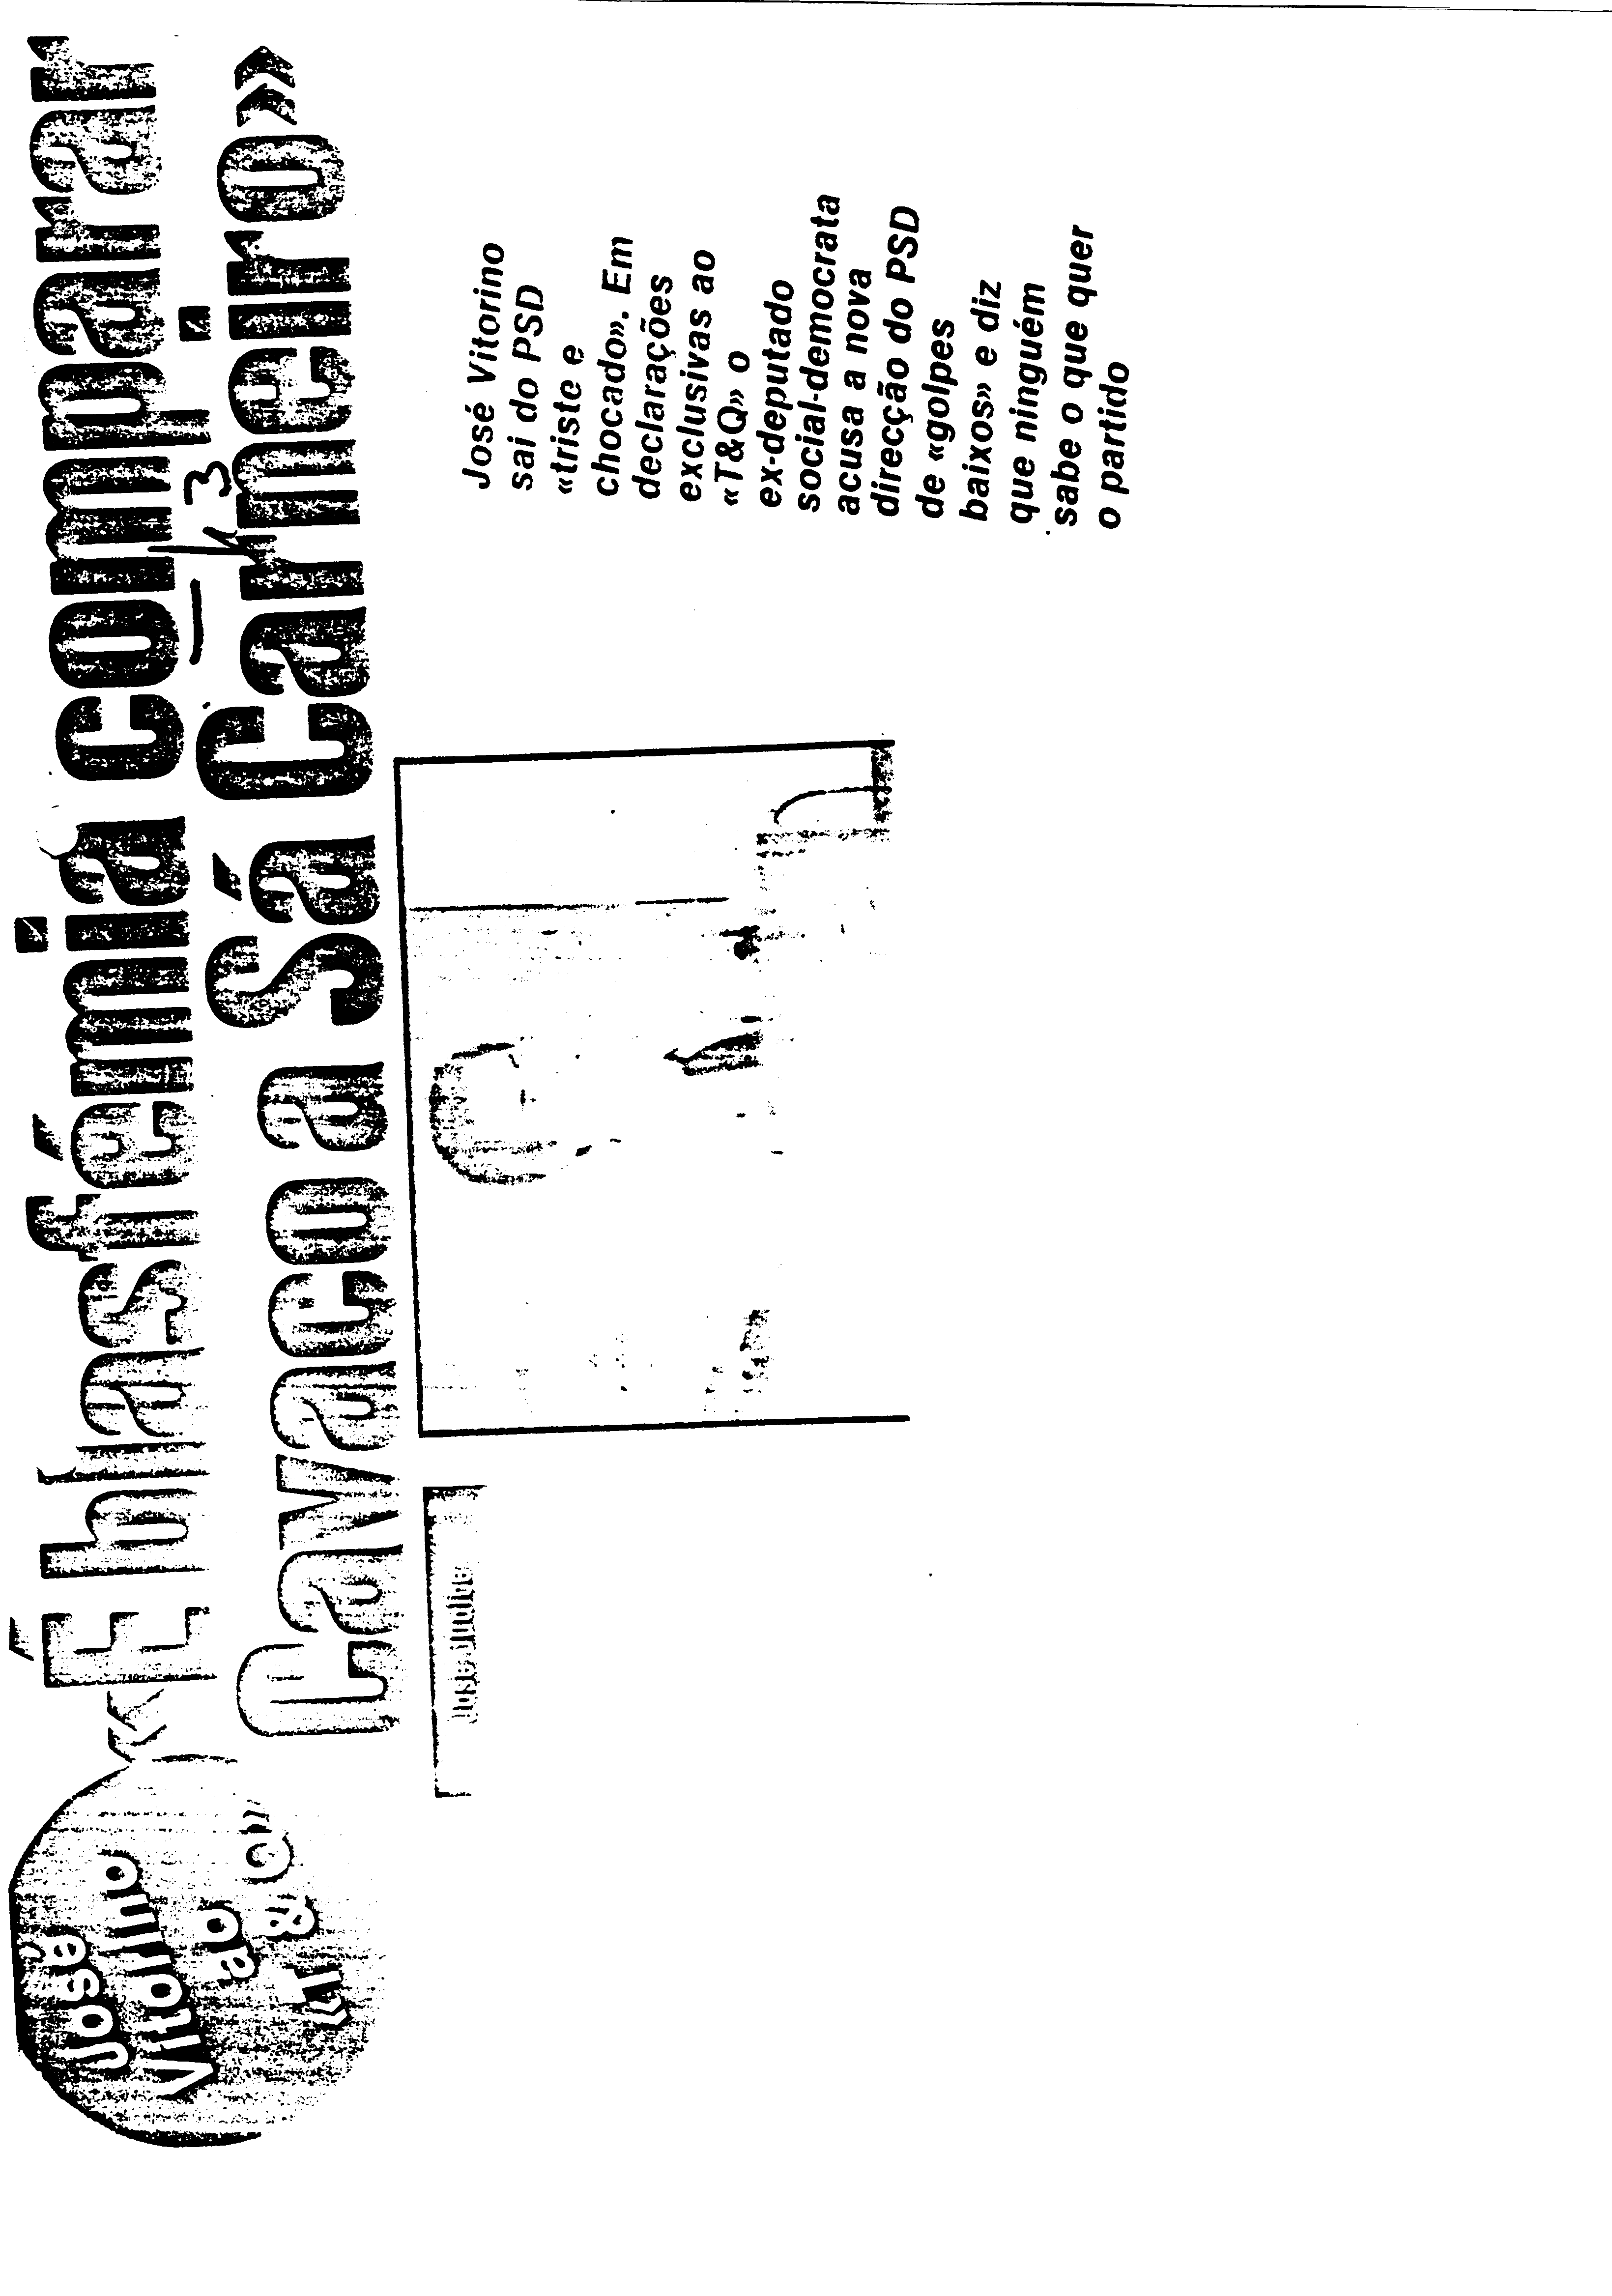 José
Vitorino
ao
«T&Q»
«É blasfémia comparar
Cavaco a Sá Carneiro»
José Vitorino
sai do PSD
«triste e
chocado». Em
declarações
exclusivas ao
«T&Q» o
ex-deputado
social-democrata
acusa a nova
direcção do PSD
de «golpes
baixos» e diz
que ninguém
sabe o que quer
o partido